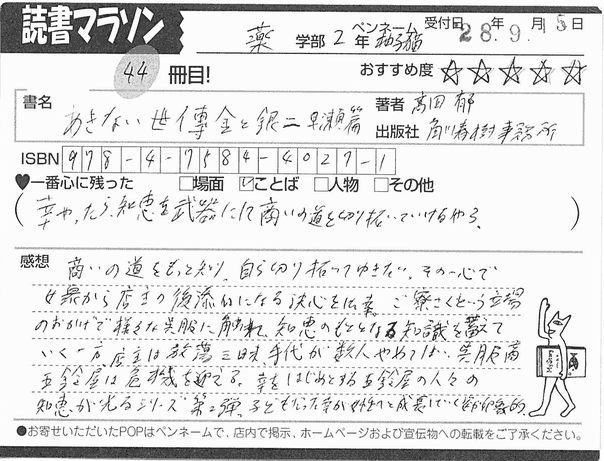 読書マラソン
薬 学部 2 年 ペンネーム 猫 受付日 28年 9月 15日
44 冊目! おすすめ度 ☆☆☆☆☆
書名 あきない世傳金と銀二 早瀬篇
著者 髙田 郁
出版社 角川春樹事務所
ISBN 978-4-7584-4027-1
♥一番心に残った □場面 ☑ことば □人物 □その他
(幸やったら、知恵を武器にして商いの道を切り拓いていけるやろ。)
感想 商いの道をもっと知り、自ら切り拓ってゆきたい。その一心で
女衆から店主の後添いになる決心をした幸。ご寮さんという立場
のおかげで様々な呉服に触れ、知恵のもととなる知識を蓄えて
いく一方、店主は放蕩三昧、手代が数人やめてしまい、呉服商
五鈴屋は危機を迎える。幸をはじめとする五鈴屋の人々の
知恵が光るシリーズ第二弾。子どもだった幸が成長していく姿が印象的
●お寄せいただいたPOPはペンネームで、店内で掲示、ホームページおよび宣伝物への転載をご了承ください。